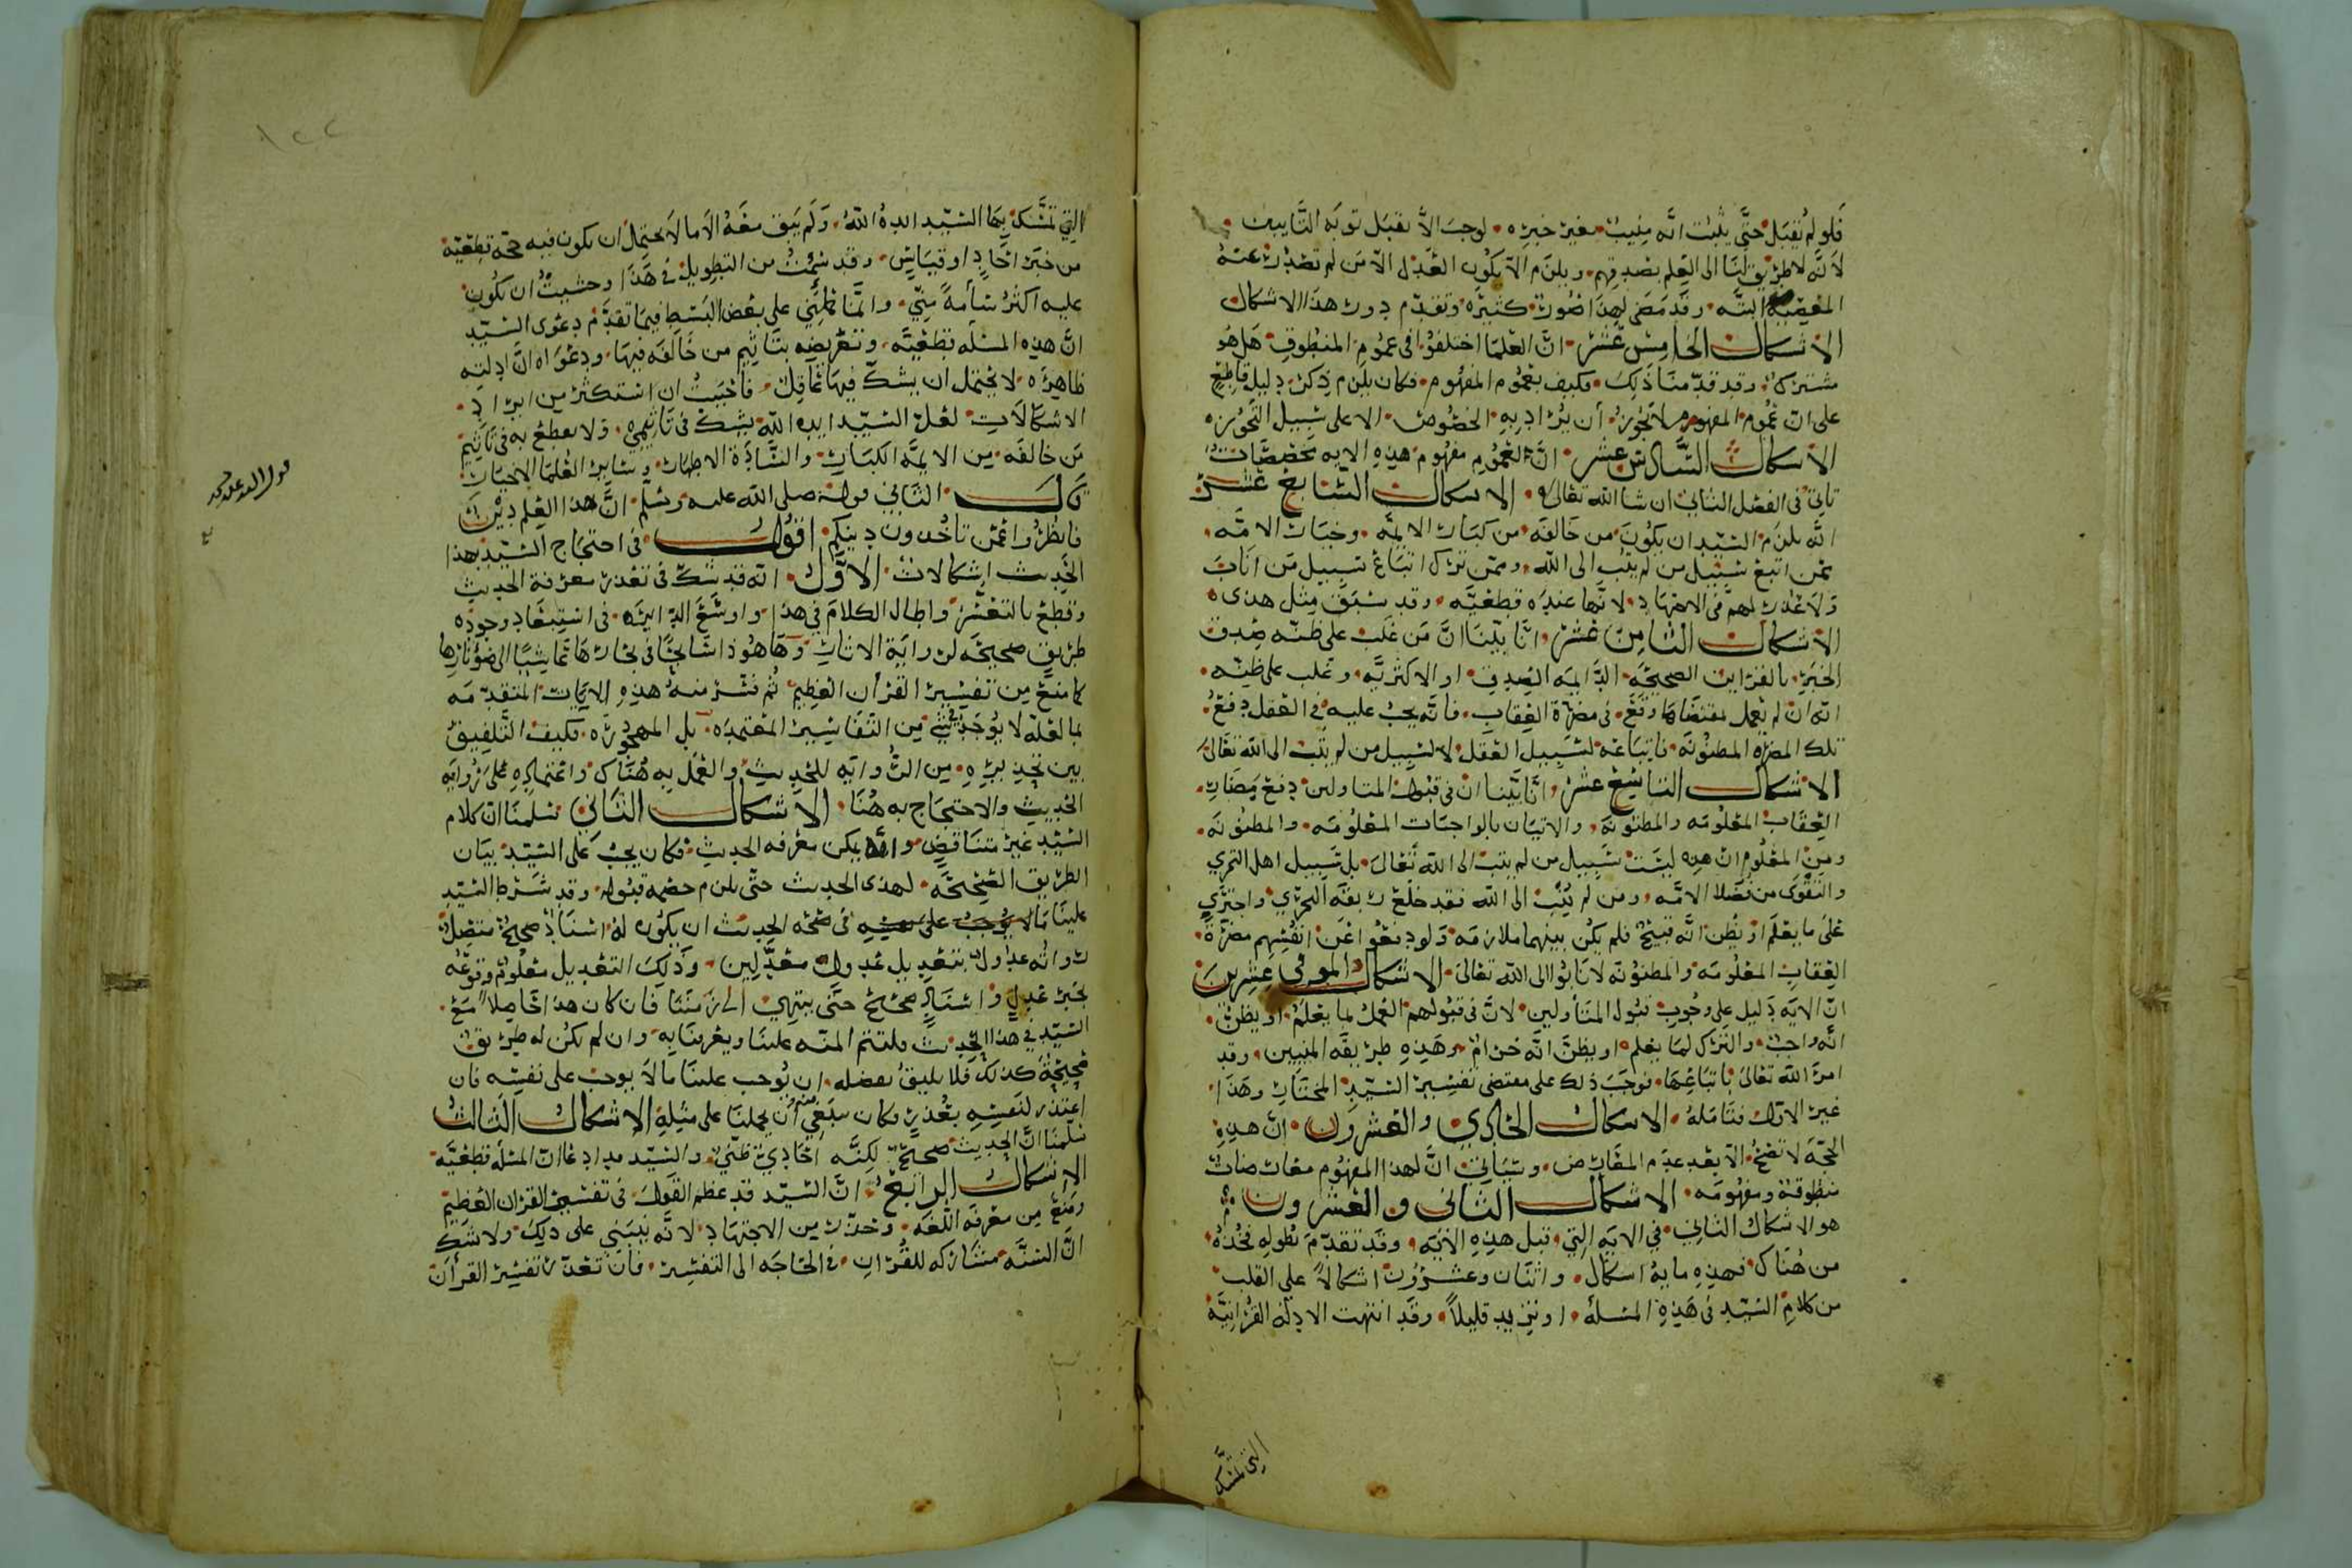 فلو لم نقبل حتى يثبت انه منيب بغير خبره لوجب الا نقبل توبه التايب
لانه لا طريق لنا الى العلم بصدقهم ويلزم الا يكون العدل الا من لم تصدر عنه
المعصية البته وقد مضى لهذا صور كثيره وتقدم دون هذا الاشكال
الاشكال الخامس عشر ان العلما اختلفوا في عموم المنطوق هل هو
مشترك وقد قدمنا ذلك فكيف بعموم المفهوم فكان يلزم ذكر دليل قاطع
على ان عموم المفهوم لا يجوز ان يراد به الخصوص الا على سبيل التجوز
الاشكال السادس عشر ان لعموم مفهوم هذه الايه مخصصات
تاتي في الفصل الثاني ان شا الله تعالى الاشكال السابع عشر
انه يلزم السيد ان يكون من خالفه من كبار الايمه وخيار الامه
ممن اتبع سبيل من لم يتب الى الله وممن ترك اتباع سبيل من اناب
ولا عذر لهم في الاجتهاد لانها عنده قطعيه وقد سبق مثل هذا
الاشكال الثامن عشر انا بينا ان من غلب على ظنه صدق
الخبر بالقراين الصحيحه الداليه الصدق او الاكثريه وغلب على ظنه
انه ان لم يعمل بمقتضاها وقع في مضرة العقاب فانه يجب عليه في العقل دفع
تلك المضره المظنونه فاتباعه لسبيل العقل لا لسبيل من لم يتب الى الله تعالى
الاشكال التاسع عشر انا بينا ان في قبول المتاولين دفع مضار
العقاب المعلومه والمظنونه والاتيان بالواجبات المعلومه والمظنونه
ومن المعلوم ان هذه ليست سبيل من لم يتب الى الله تعالى بل سبيل اهل التحري
والتقوى من فضلا الامه ومن لم يتب الى الله فقد خلع ربقة التحري واجترى
على ما يعلم او يظن انه قبيح فلم يكن بينهما ملازمه ولو دفعوا عن انفسهم مضرة
العقاب المعلومه والمظنونه لانابوا الى الله تعالى الاشكال الموفي عشرين
ان الايه دليل على وجوب قبول المتاولين لان في قبولهم العمل بما يعلم او يظن
انه واجب والترك لما يعلم او يظن انه حرام وهذه طريقه المنيبين وقد
امر الله تعالى باتباعها فوجب ذلك على مقتضى تفسير السيد المختار وهذا
غير الاول فتامله الاشكال الحادي والعشرون ان هذه
الحجه لا تصح الا بعد عدم المعارض وسياتي ان لهذا المفهوم معارضات
منطوقه ومفهومه الاشكال الثاني والعشرون
هو الاشكال الثاني في الايه التي قبل هذه الايه وقد تقدم بطوله فخذه
من هناك فهذه مايه اشكال واثنان وعشرون اشكالا على القلب
من كلام السيد في هذه المسله او تزيد قليلا وقد انتهت الادله القرانيه
التي تمسك
التي تمسك بها السيد ايده الله ولم يبق معه الا ما لا يحتمل ان يكون فيه حجه قطعيه
من خبر احاد او قياس وقد سئمت من التطويل في هذا وخشيت ان يكون
عليه اكثر سأمة مني وانما حملني على بعض البسط فيما تقدم دعوى السيد
ان هذه المسله قطعيه وتعريضه بتاثيم من خالفه فيها ودعواه ان ادلته
ظاهره لا يحتمل ان يشك فيها عاقل فاحببت ان استكثر من ايراد
الاشكالات لعل السيد ايده الله يشك في تاثيمهم ولا يقطع به في تاثيم
من خالفه من الايمه الكبار والساده الاطهار وساير العلما الاخيار
قال الثاني قوله صلى الله عليه وسلم ان هذا العلم دين
فانظروا عمن تاخذون دينكم اقول في احتجاج السيد بهذا
الحديث اشكالات الاول انه قد شك في تعذر معرفة الحديث
وقطع بالتعسر واطال الكلام في هذا واوسع الدايره في استبعاد وجود
طريق صحيحه لرواية الاثار وها هو ذا سابحا في بحارها تماشيا الى ضو نارها
كما منع من تفسير القران العظيم ثم فسر منه هذه الايات المتقدمه
بما لعله لا يوجد في شي من التفاسير المعتمده بل المهجوره فكيف التلفيق
بين تحذيره من الروايه للحديث والعمل به هناك واعتماده على روايه
الحديث والاحتجاج به هنا الاشكال الثاني سلمنا ان كلام
السيد غير متناقض وانه يمكن معرفه الحديث فكان يجب على السيد بيان
الطريق الصحيحه لهذا الحديث حتى يلزم خصمه قبوله وقد شرط السيد
علينا في صحه الحديث ان يكون له اسناد صحيح متصل
رواته عدول بتعديل عدول معدلين وذلك التعديل معلوم وقوعه
بخبر عدل واسناد صحيح حتى ينتهي الى زمننا فان كان هذا حاصلا مع
السيد في هذا الحديث فلتتم المنه علينا ويعرفنا به وان لم يكن له طريق
صحيحة كذلك فلا يليق بفضله ان يوجب علينا ما لا يوجب على نفسه فان
اعتذر لنفسه بعذر فكان ينبغي منه ان يحملنا على مثله الاشكال الثالث
سلمنا ان الحديث صحيح لكنه احادي ظني والسيد قد ادعا ان المسله قطعيه
الاشكال الرابع ان السيد قد عظم القول في تفسير القران العظيم
ومنع من معرفه اللغه وحذر من الاجتهاد لانه ينبني على ذلك ولا شك
ان السنه مشاركه للقران في الحاجه الى التفسير فان تعذر تفسير القران